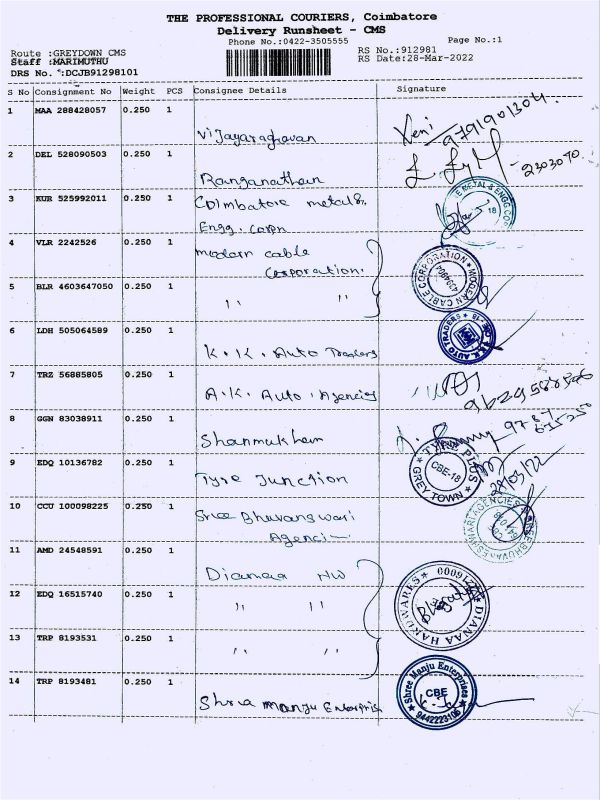 THE PROFESSIONAL COURIERS, Coimbatore
Delivery Runsheet - CMS
Phone No.:0422-3505555 Page No.:1
Route :GREYDOWN CMS RS No.:912981
Staff :MARIMUTHU RS Date:28-Mar-2022
DRS No. :DCJB91298101
S No Consignment No Weight PCS Consignee Details Signature
1 MAA 288428057 0.250 1 Vijayaraghavan Veni 9791901304
2 DEL 528090503 0.250 1 Ranganathan 2303070
3 KUR 525992011 0.250 1 Coimbatore metal &
Engg. Corpn METAL & ENGG CORP 18
4 VLR 2242526 0.250 1 modern cable
Corporation. MODERN CABLE CORPORATION
5 BLR 4603647050 0.250 1 " "
6 LDH 505064589 0.250 1 K.K. Auto Traders K.K. AUTO TRADERS
7 TRZ 56885805 0.250 1 A.K. Auto Agencies
8 GGN 83038911 0.250 1 Shanmukham
9 EDQ 10136782 0.250 1 Tyre Junction TYRE PLUS CBE-18 GREY TOWN
10 CCU 100098225 0.250 1 Sree Bhuvaneswari
Agenci
11 AMD 24548591 0.250 1 Dianaa HW
12 EDQ 16515740 0.250 1 " " DIANAA HARDWARES
13 TRP 8193531 0.250 1 " "
14 TRP 8193481 0.250 1 Shree Manju Enterpris Shree Manju Enterprises CBE 9442223105